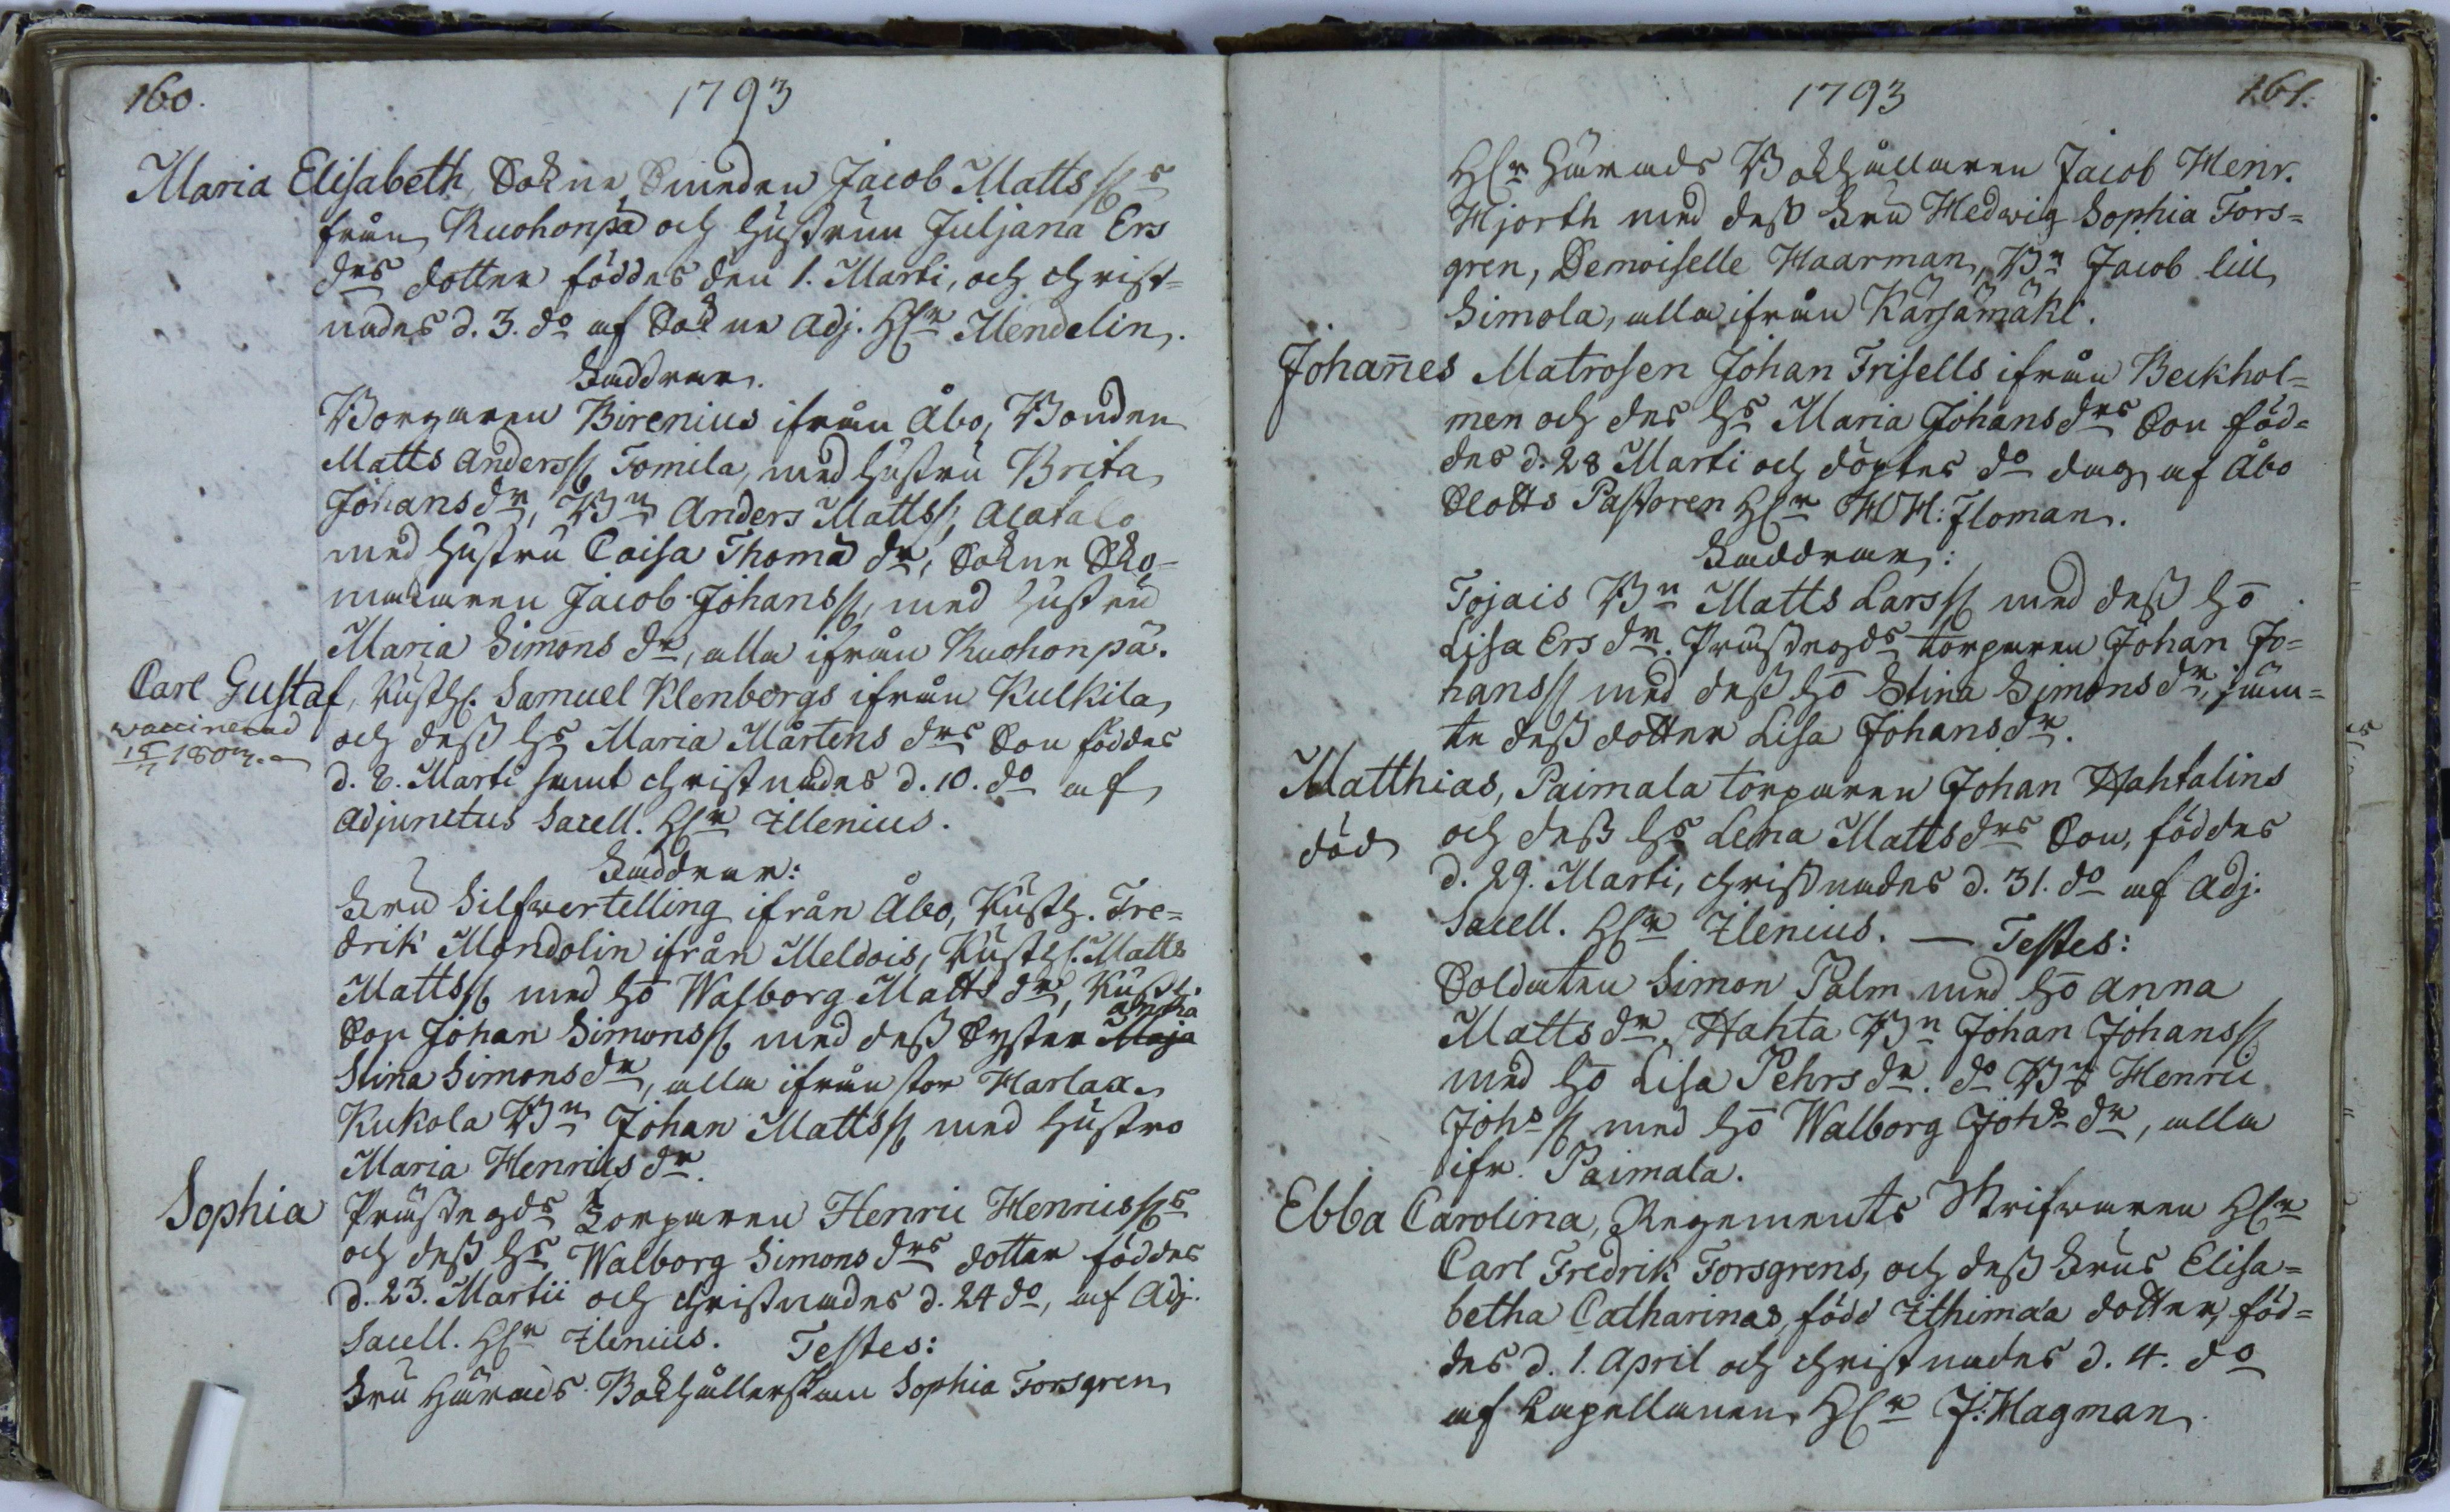 160.
1793
Maria Elisabeth, Sokne Smeden Jacob Mattss:s
från Ruohonpä och hustrun Juljana Ers
drs dotter föddes den 1. Marti, och christ=
nades d. 3. do af Sokne Adj. Hr Mendelin.
Faddrar.
Borgaren Birenius ifrån Åbo, Bonden
Matts Anderss: Tomila, med hustru Brita
Johansdr, Bn Anders Mattss: Alatalo
med hustru Caisa Thomæ dr, Sokne Sko=
makaren Jacob Johanss: med hustru
Maria Simons dr, alla ifrån Ruohonpä.
Carl Gustaf, Rusth. Samuel Klenbergs ifrån Kulkila
waccinerad
och dess hs Maria Mårtens drs Son föddes
d. 8. Marti samt christnades d. 10. do af
Adjunctus Sacell. Hr Illenius.
Faddrar:
Fru Silfwertelling ifrån Åbo, Rusth. Fre=
drik Mondolin ifrån Meldois, Rusth. Matts
Mattss: med ho Walborg Mattsdr, Rusth.
Son Johan Simonss: med dess Syster Maja
Stina Simonsdr, alla ifrån stor Harlax
Kukola Bn Johan Mattss: med hustro
Maria Henricsdr.
Sophia Prästegds Torparen Henric Henricss:s
och dess hs Walborg Simons drs dotter föddes
d. 23. Martii och christnades d. 24 do, af Adj.
Sacell. Hr Ilenius. Testes:
Fru Härads Bokhållerskan Sophia Forsgren
1793
161.
Hr Härads Bokhållaren Jacob Henr.
Hjorth med dess Fru Hedwig Sophia Fors=
gren, Demoiselle Haarman, Bn Jacob lill
Simola, alla ifrån Kärsämäki.
Johañes Matrosen Johan Frisells ifrån Beckhol=
men och des hs Maria Johans drs Son föd=
des d. 28 Marti och döptes do dag af Åbo
Slotts Pastoren Hr H H: Floman.
Faddrar:
Tojais Bn Matts Larss: med dess ho
Lisa Ers dr. Prästegds torparen Johan Jo=
hanss: med dess ho Stina Simons dr, säm=
te dess dotter Lisa Johansdr.
Matthias, Paimala torparen Johan Hahtalins
död
och dess hs Lena Mattsdrs Son, föddes
d. 29. Marti, christnades d. 31. do af Adj.
Sacell. Hr Ilenius. — Testes:
Soldaten Simon Palm med ho Anna
Matts dr. Hahta Bn Johan Johanss:
med ho Lisa Pehrs dr. do Bn Henric
Johs s: med ho Walborg Johs dr, alla
ifr. Paimala.
Ebba Carolina, Regements Skrifwaren Hr
Carl Fredrik Forsgrens, och dess Frus Elisa=
betha Catharinas, född Ithimæa dotter, föd=
des d. 1. April och christnades d. 4. do
af Capellanen Hr J: Hagman.